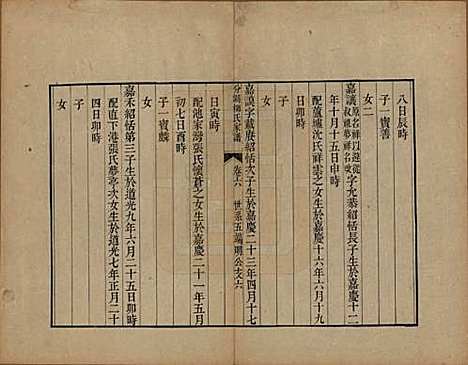 八日辰時
子一寶善
女二
嘉讓原名祥以避從叔藜夢祥名改字允恭紹恬長子生於嘉慶十二
年十月十五日申時
配蘆墟沈氏祥雲之女生於嘉慶十六年六月十九
日卯時
子
女
分湖柳氏家譜 卷六 世系五端明公支六
嘉謨字載賡紹恬次子生於嘉慶二十三年四月十七
日寅時
配池家灣張氏懷蒼之女生於嘉慶二十一年五月
初七日酉時
子一寶麟
女
嘉禾紹恬第三子生於道光九年六月二十五日卯時
配直下港張氏夢亭次女生於道光七年正月二十
四日卯時
子
女